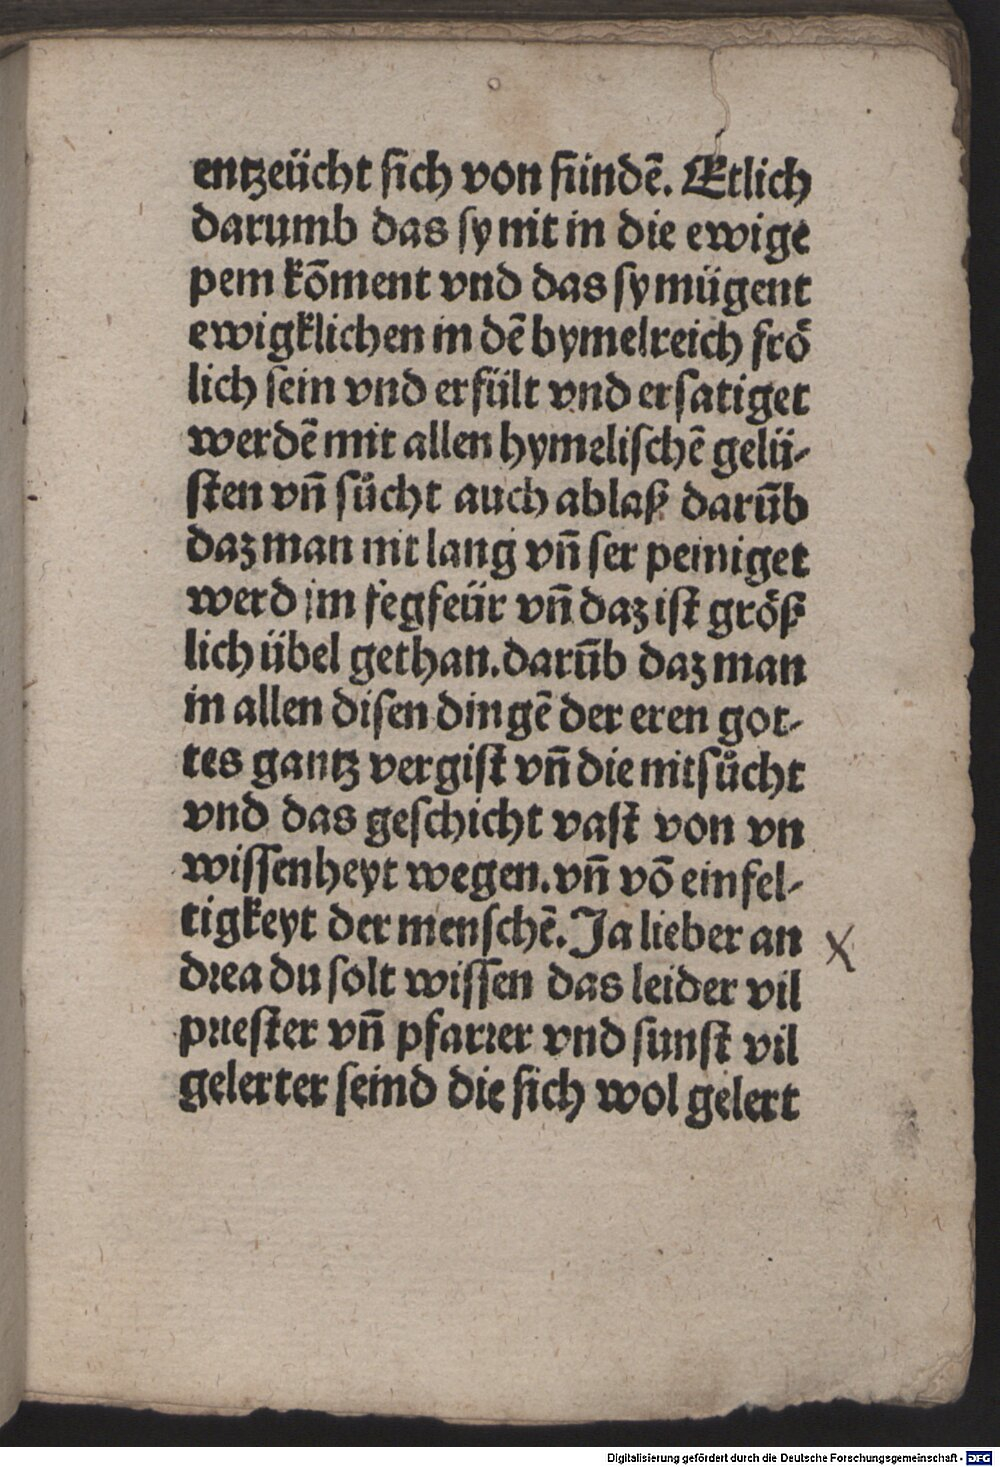 entzeücht sich von sündē. Etlich
darumb das sy nit in die ewige
pein kōment vnd das sy mügent
ewigklichen in dē hymelreich frö
lich sein vnd erfült vnd ersatiget
werdē mit allen hymelischē gelü-
sten vn̄ sůcht auch ablaß darūb
daz man nit lang vn̄ ser peiniget
werd im fegfeür vn̄ daz ist größ
lich übel gethan. darūb daz man
in allen disen dingē der eren got-
tes gantz vergist vn̄ die nit sůcht
vnd das geschicht vast von vn
wissenheyt wegen. vn̄ vō einfel-
tigkeyt der menschē. Ja lieber an
drea du solt wissen das leider vil
priester vn̄ pfarrer vnd sunst vil
gelerter seind die sich wol gelert
X
Digitalisierung gefördert durch die Deutsche Forschungsgemeinschaft - DFG